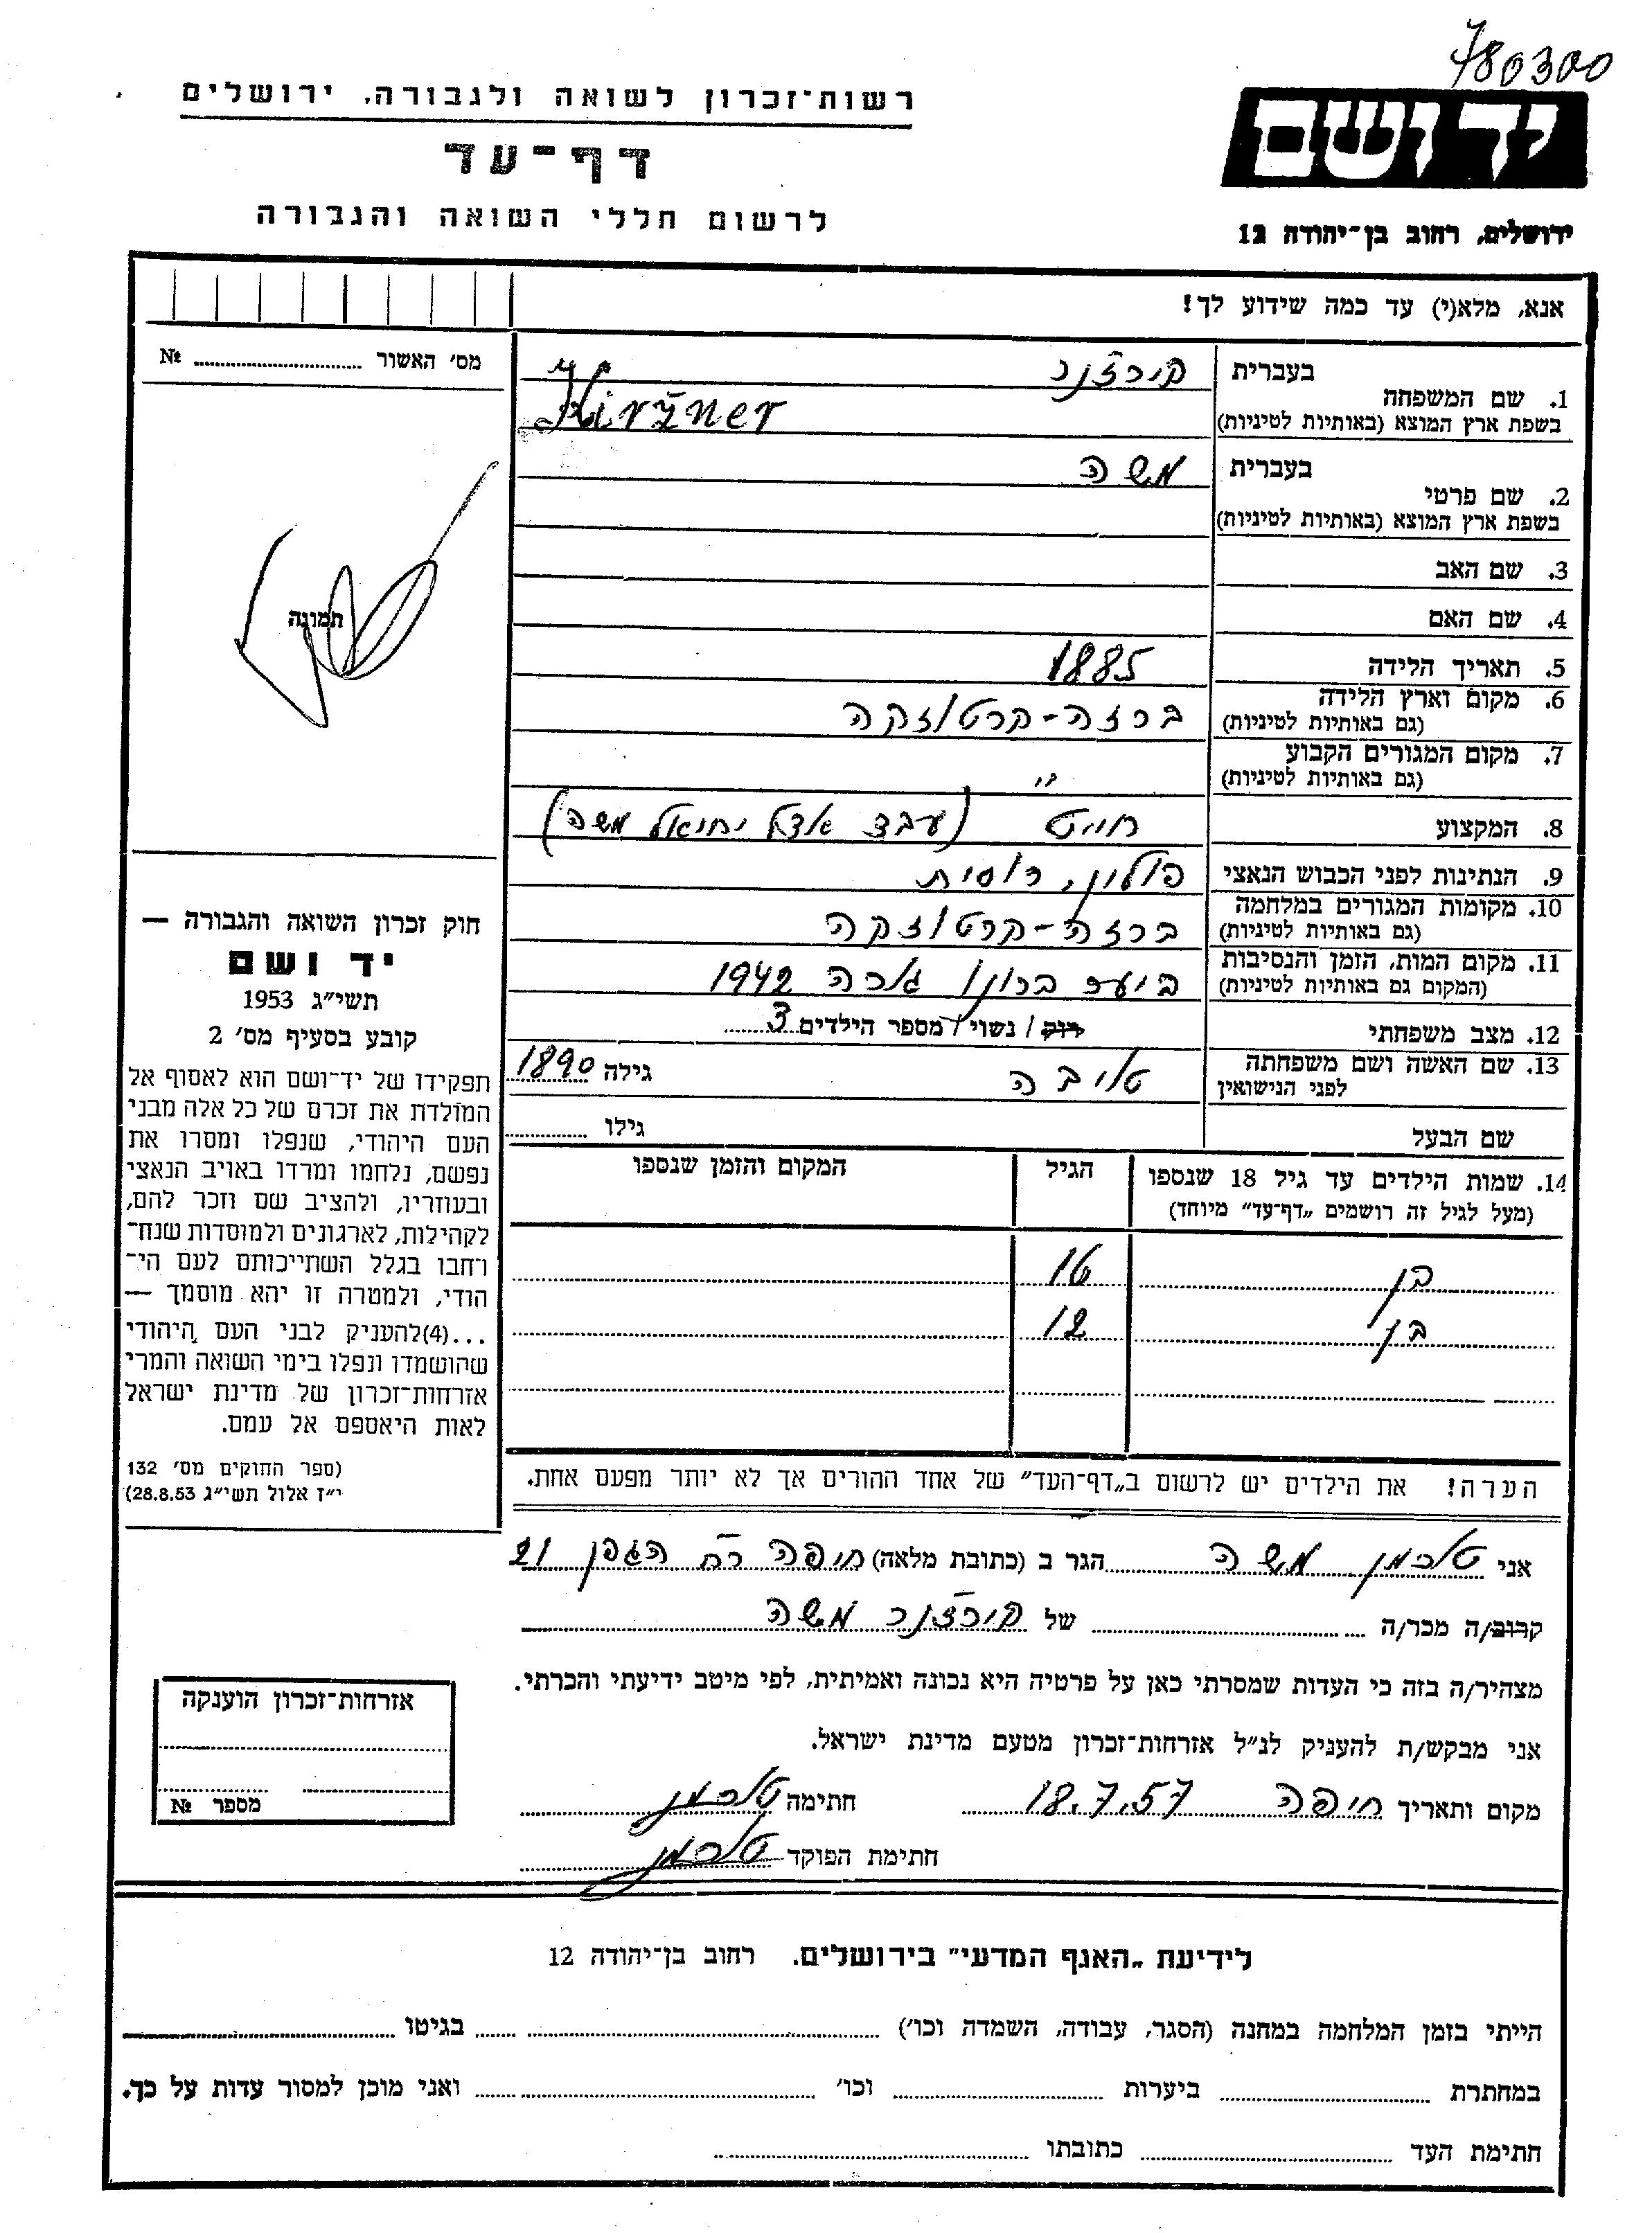 780300
רשות־זכרון לשואה ולגבורה, ירושלים
דף־עד
לרשום חללי השואה והגבורה
ידושם
ירושלים, רחוב בן־יהודה 12
אנא, מלא(י) עד כמה שידוע לך!
מס׳ האשור ........ №
תמונה
1. שם המשפחה בעברית קירז'נר
בשפת ארץ המוצא (באותיות לטיניות) Kiržner
2. שם פרטי בעברית משה
בשפת ארץ המוצא (באותיות לטיניות)
3. שם האב
4. שם האם
5. תאריך הלידה 1885
6. מקום וארץ הלידה (גם באותיות לטיניות) ברזה-קרטוזקה
7. מקום המגורים הקבוע (גם באותיות לטיניות) "
8. המקצוע חייט (עבד אצל יחיאל משה)
9. הנתינות לפני הכבוש הנאצי פולין, רוסית
10. מקומות המגורים במלחמה (גם באותיות לטיניות) ברזה-קרטוזקה
11. מקום המות, הזמן והנסיבות (המקום גם באותיות לטיניות) ביער ברונו גורה 1942
12. מצב משפחתי רוק / נשוי / מספר הילדים 3
13. שם האשה ושם משפחתה לפני הנישואין טויבה גילה 1890
שם הבעל גילו ........
14. שמות הילדים עד גיל 18 שנספו הגיל המקום והזמן שנספו
(מעל לגיל זה רושמים „דף־עד" מיוחד)
בן 16
בן 12
הערה! את הילדים יש לרשום ב„דף־העד" של אחד ההורים אך לא יותר מפעם אחת.
חוק זכרון השואה והגבורה —
יד ושם
תשי״ג 1953
קובע בסעיף מס׳ 2
תפקידו של יד־ושם הוא לאסוף אל
המולדת את זכרם של כל אלה מבני
העם היהודי, שנפלו ומסרו את
נפשם, נלחמו ומרדו באויב הנאצי
ובעוזריו, ולהציב שם וזכר להם,
לקהילות, לארגונים ולמוסדות שנח־
רבו בגלל השתייכותם לעם הי־
הודי, ולמטרה זו יהא מוסמך —
...(4)להעניק לבני העם היהודי
שהושמדו ונפלו בימי השואה והמרי
אזרחות־זכרון של מדינת ישראל
לאות היאספם אל עמם.
(ספר החוקים מס׳ 132
י״ז אלול תשי״ג 28.8.53)
אני טוכמן משה הגר ב (כתובת מלאה) חיפה רח' הגפן 21
קרוב/ה מכר/ה ........ של קירז'נר משה
מצהיר/ה בזה כי העדות שמסרתי כאן על פרטיה היא נכונה ואמיתית, לפי מיטב ידיעתי והכרתי.
אני מבקש/ת להעניק לנ״ל אזרחות־זכרון מטעם מדינת ישראל.
מקום ותאריך חיפה 18.7.57 חתימה טוכמן
חתימת הפוקד טוכמן
אזרחות־זכרון הוענקה
מספר №
לידיעת „האגף המדעי" בירושלים. רחוב בן־יהודה 12
הייתי בזמן המלחמה במחנה (הסגר, עבודה, השמדה וכו׳) ........ בגיטו ........
במחתרת ........ ביערות ........ וכו׳ ........ ואני מוכן למסור עדות על כך.
חתימת העד ........ כתובתו ........